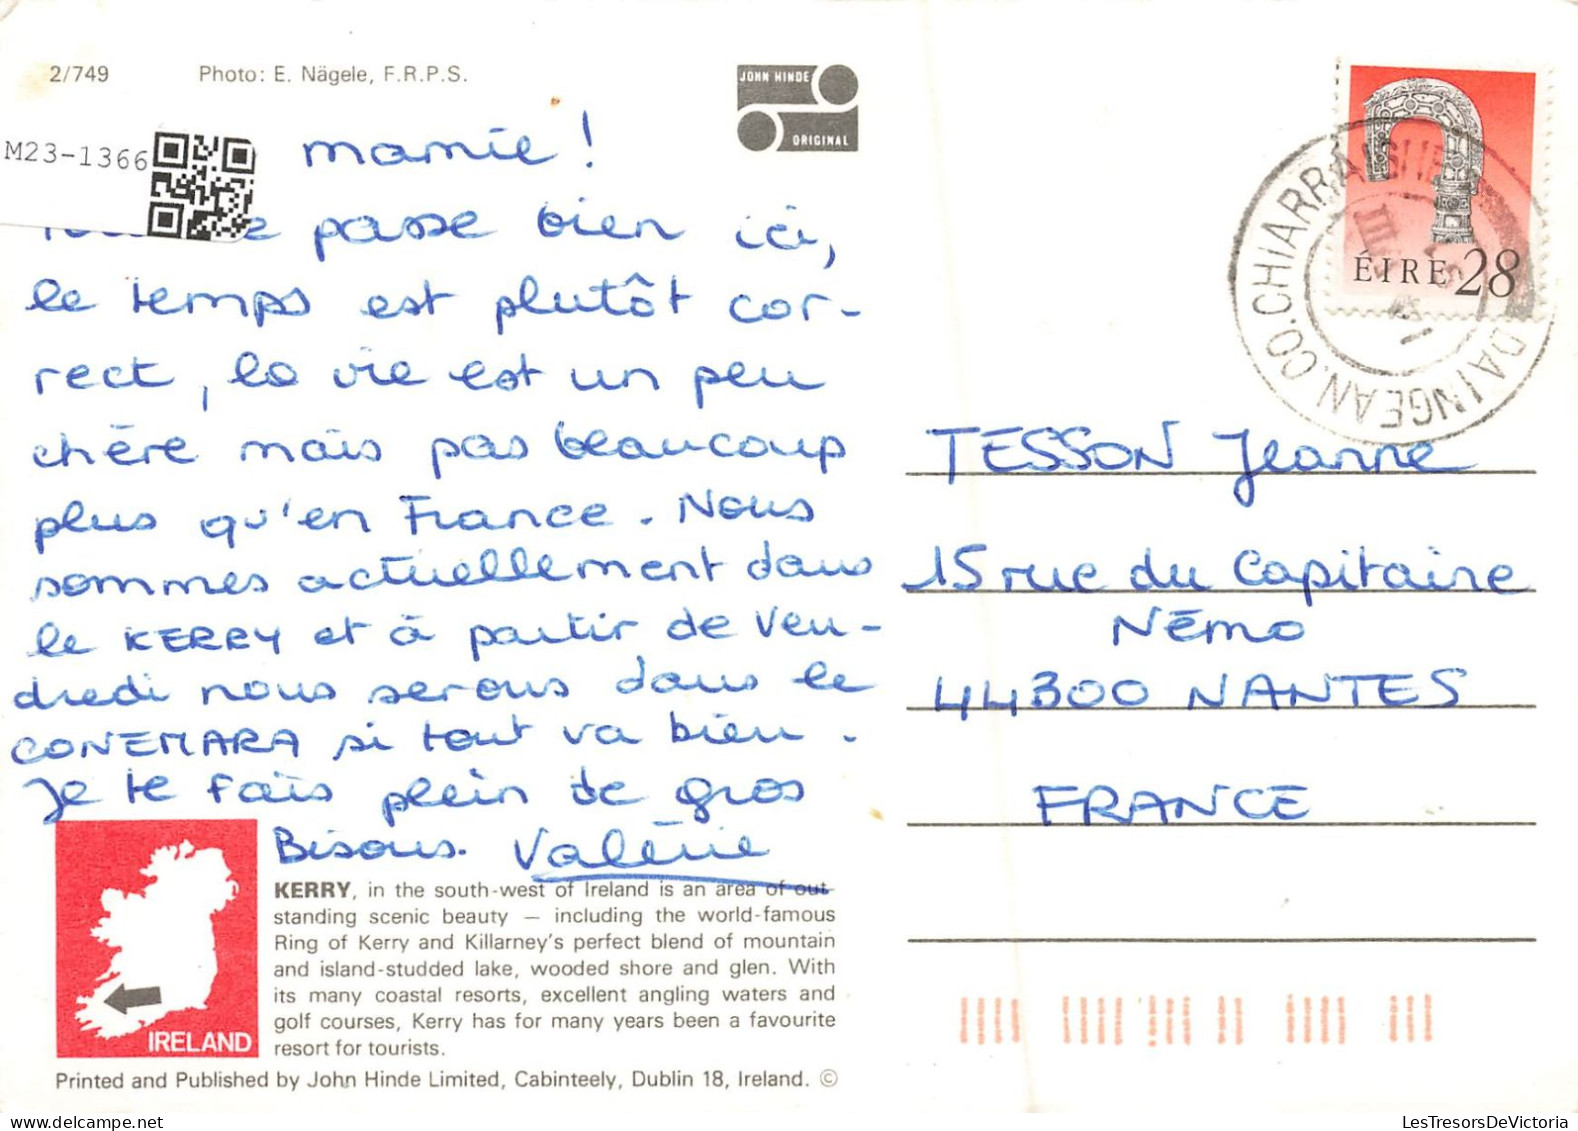 2/749 Photo: E. Nägele, F.R.P.S.
JOHN HINDE
ORIGINAL
M23-1366
mamie !
passe bien ici,
le temps est plutôt cor-
rect, la vie est un peu
chère mais pas beaucoup
plus qu'en France. Nous
sommes actuellement dans
le KERRY et à partir de Ven-
dredi nous serons dans le
CONEMARA si tout va bien.
Je te fais plein de gros
Bisous. Valérie
KERRY, in the south-west of Ireland is an area of out-
standing scenic beauty — including the world-famous
Ring of Kerry and Killarney's perfect blend of mountain
and island-studded lake, wooded shore and glen. With
its many coastal resorts, excellent angling waters and
golf courses, Kerry has for many years been a favourite
resort for tourists.
IRELAND
Printed and Published by John Hinde Limited, Cabinteely, Dublin 18, Ireland. ©
ÉIRE 28
DAINGEAN. CO. CHIARRAIGHE
TESSON Jeanne
15 rue du Capitaine
Némo
44300 NANTES
FRANCE
LesTresorsDeVictoria